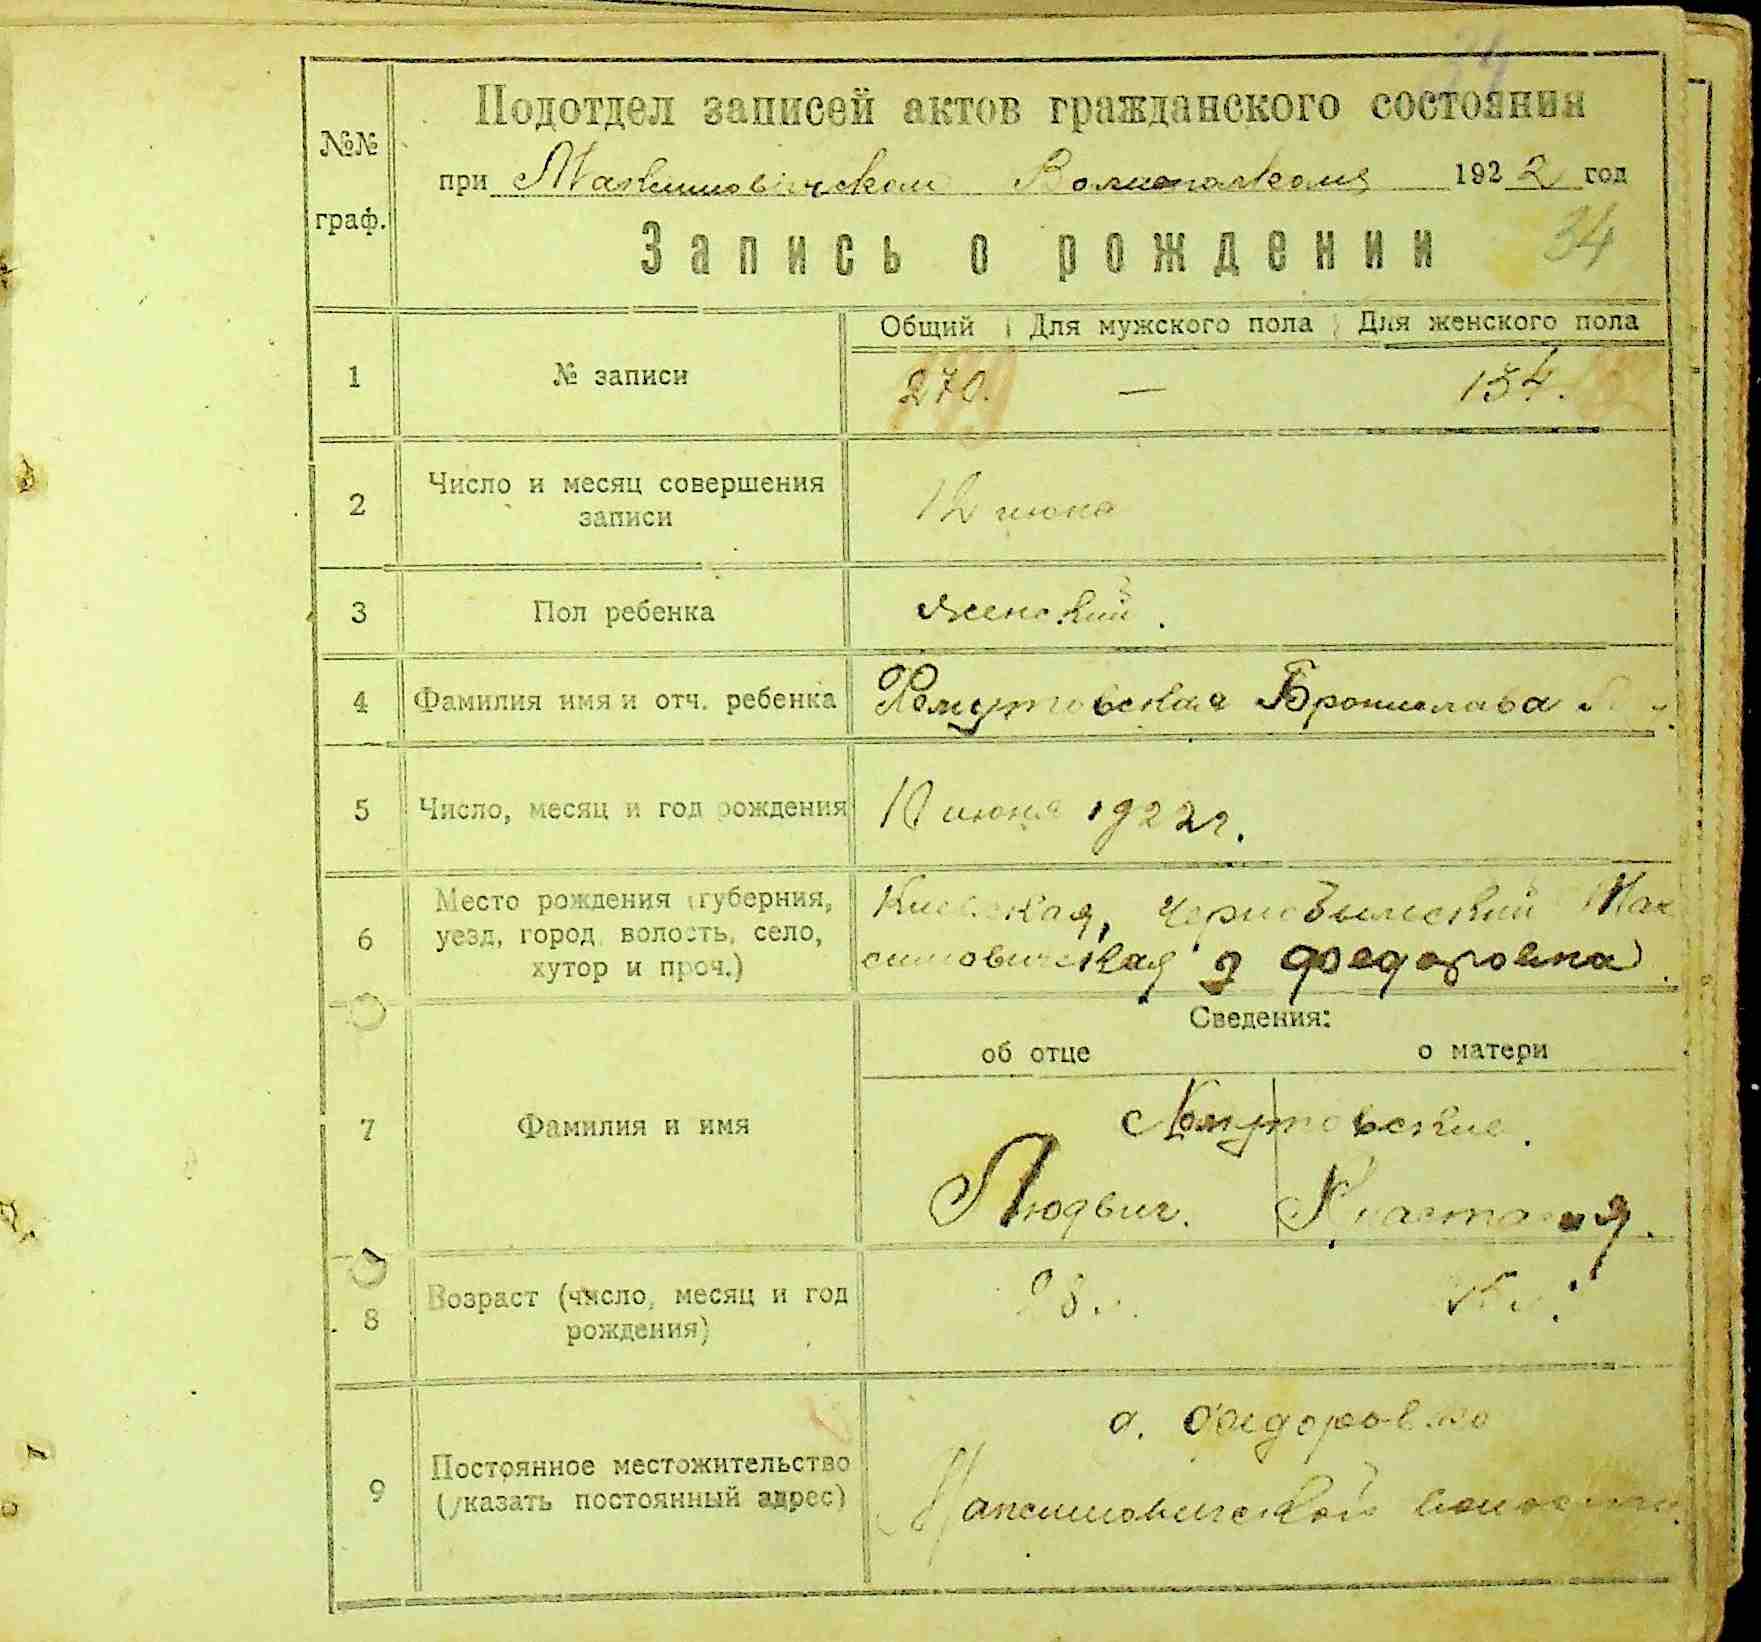 34
№№ граф.
Подотдел записей актов гражданского состояния
при Максимовическом Волисполкоме 1922 год
Запись о рождении
34
Общий Для мужского пола Для женского пола
1 № записи 270. — 134.
2 Число и месяц совершения
записи 12 июня
3 Пол ребенка женский.
4 Фамилия имя и отч. ребенка Хомутовская Бронислава
5 Число, месяц и год рождения 10 июня 1922 г.
6 Место рождения (губерния,
уезд, город, волость, село,
хутор и проч.)
Киевская, Чернобыльский Мак
симовическая д Федоровка
Сведения:
об отце о матери
7 Фамилия и имя
Хомутовские.
Людвиг. Анастасия.
8 Возраст (число, месяц и год
рождения)
28 л.
9 Постоянное местожительство
(указать постоянный адрес)
д. Федоровка
Максимовической волости.